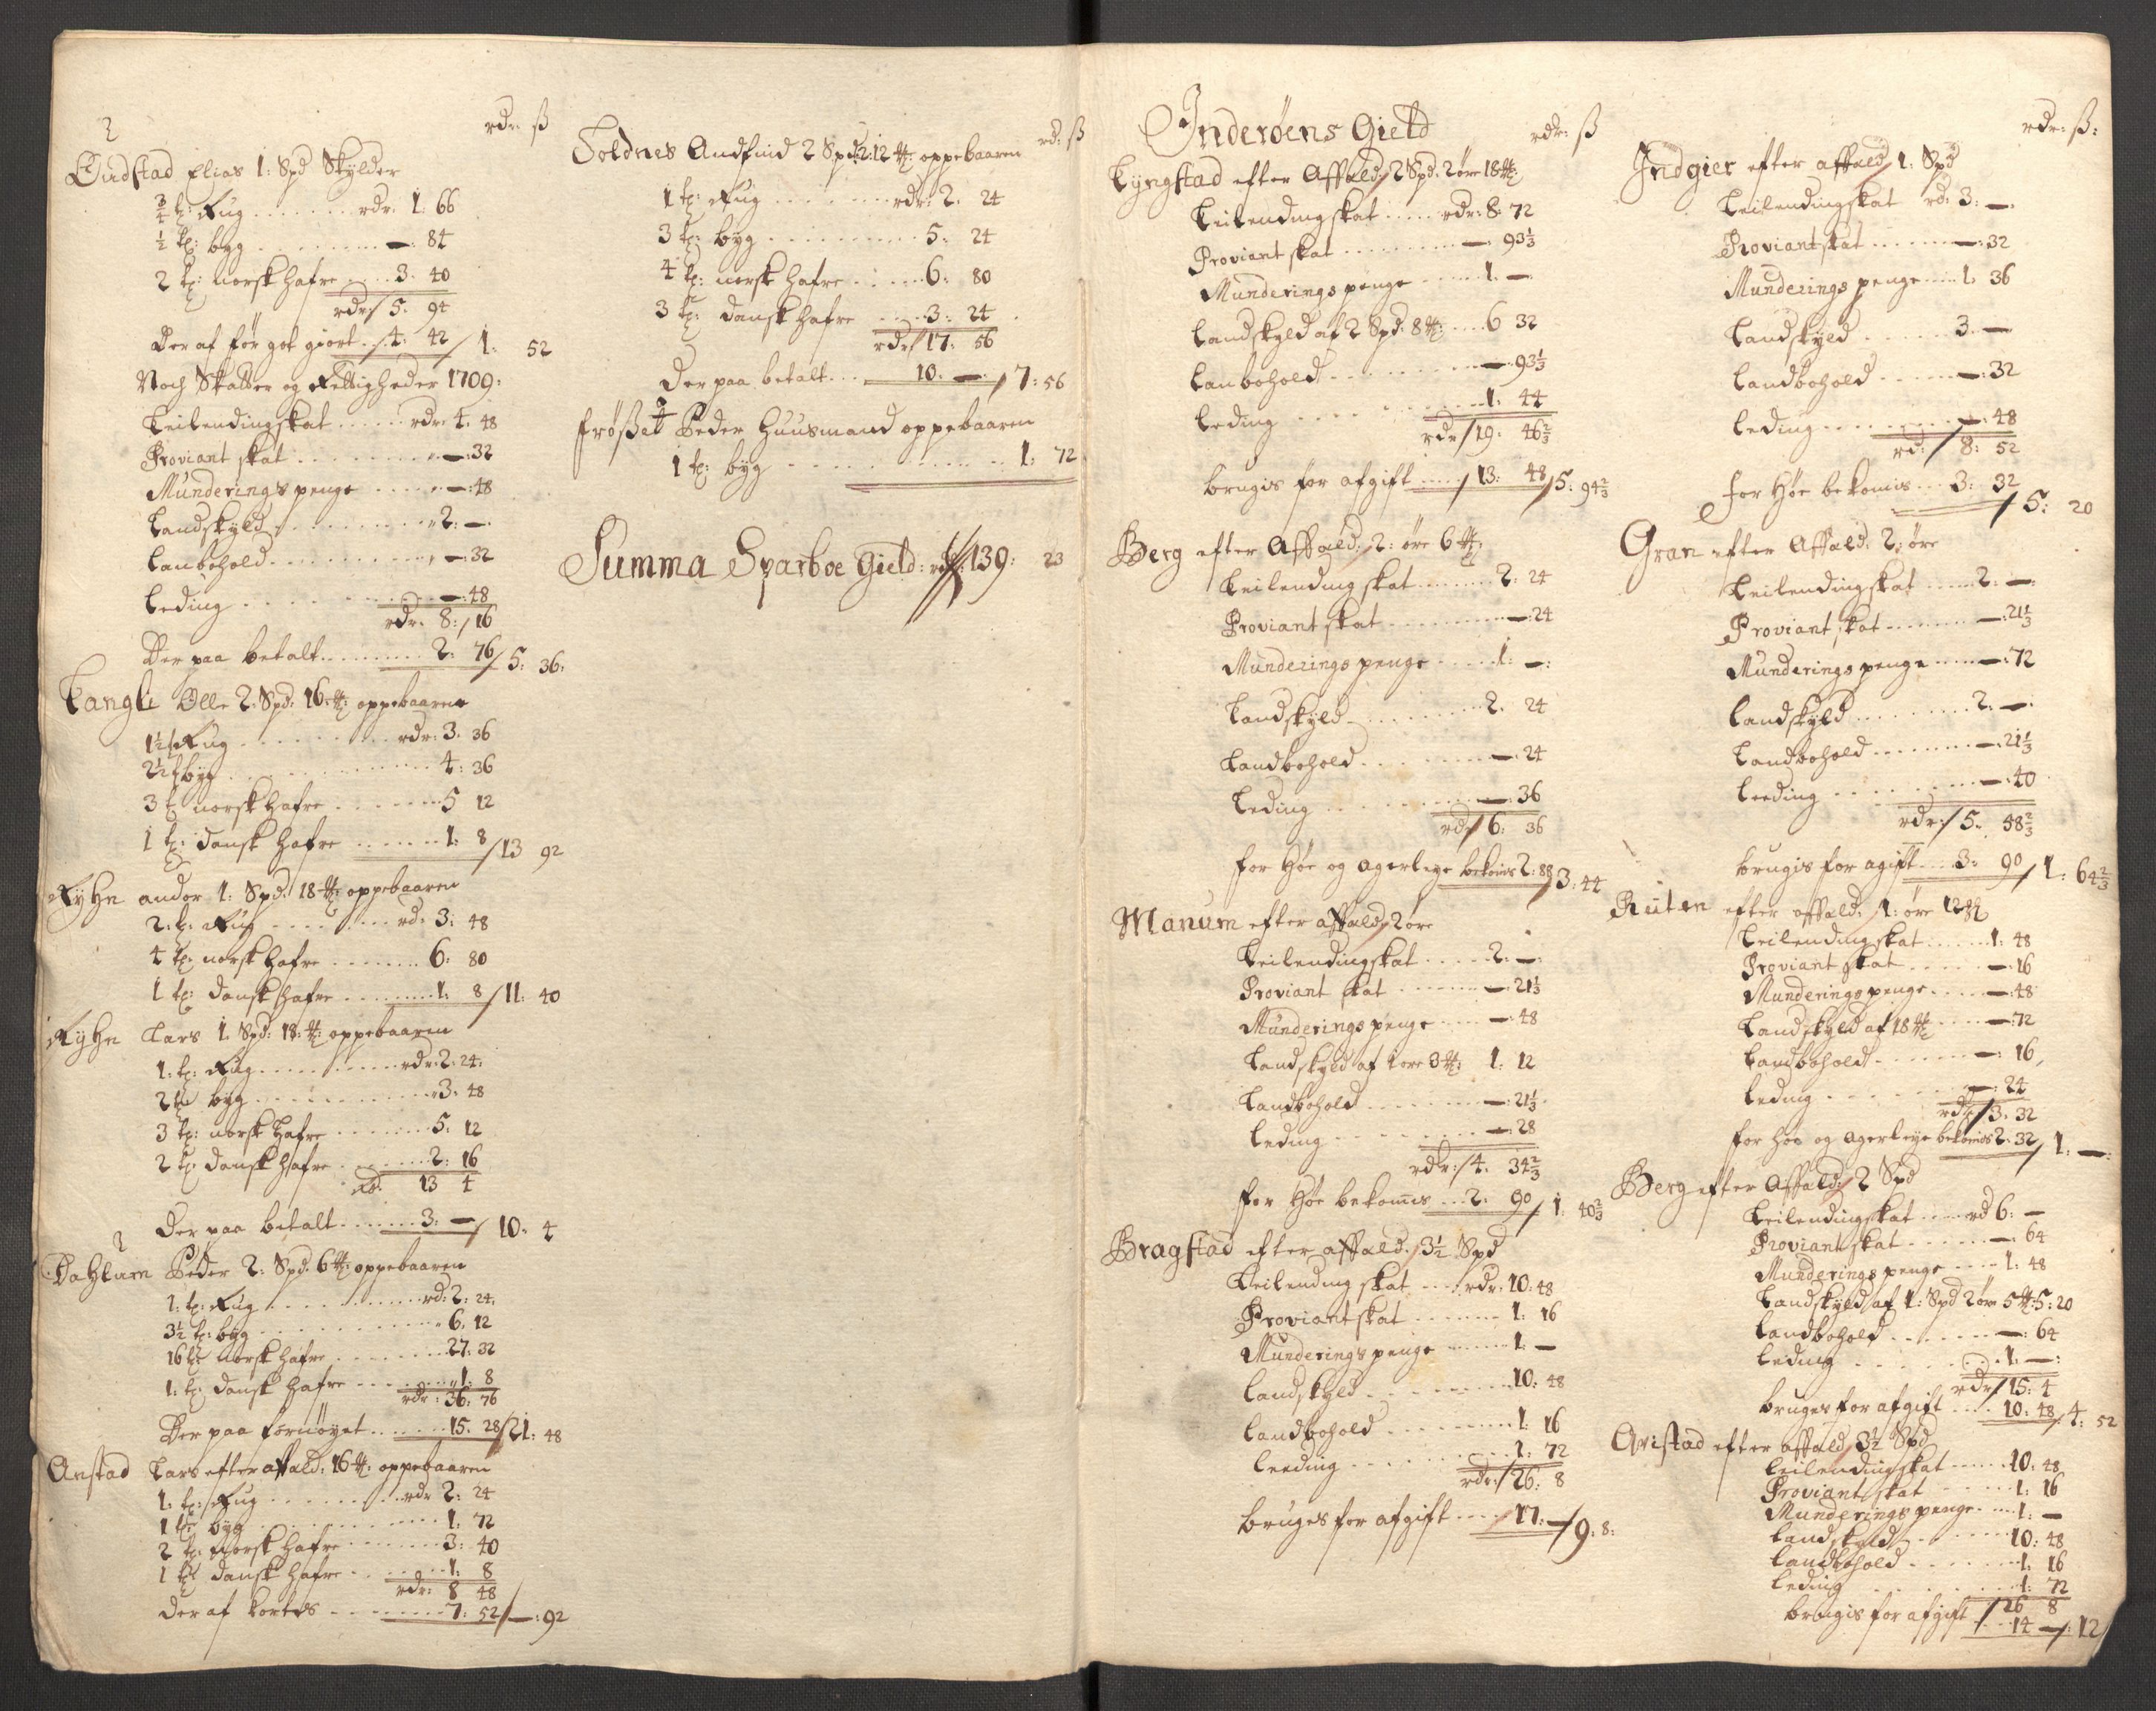 rdr: ß
2
Oudstad Elias 1: Spd Skylder
3/4 tꝫ: Rug ....... rdr. 1: 66
1/2 tꝫ: byg ....... —: 84
2 tꝫ: norsk hafre .... 3. 40
rdr/ 5. 94
Der af før got giort ../4: 42 / 1: 52
Noch Skatter og Rettigheder 1709:
Leilendingskat ..... rdr: 4. 48
Proviant skat ....... —:32
Munderings penge ..... —:48
Landskyld ......... 2: —.
Lanbohold ......... —:32
Leding ......... —:48
rdr. 8:/16
Der paa betalt ....... 2: 76 / 5: 36:
Langli Olle 2. Spd: 16 ℔: oppebaaren
1 1/2 tꝫ Rug ....... rdr: 3. 36
2 1/2 tꝫ byg ....... 4: 36
3 tꝫ norsk hafre ....... 5 12
1 tꝫ: dansk hafre ....... 1: 8 /13 92
Ryhn andor 1: Spd: 18 ℔: oppebaaren
2. tꝫ: Rug ....... rd: 3: 48
4 tꝫ: norsk hafre ....... 6: 80
1 tꝫ: dansk hafre ....... 1: 8 /11: 40
Ryhn Lars 1. Spd: 18: ℔: oppebaaren
1: tꝫ: Rug ....... rdr: 2: 24:
2 tꝫ byg ....... 3: 48
3 tꝫ: norsk Hafre ....... 5: 12
2 tꝫ: dansk hafre ....... 2: 16
rdr: 13 4
Der paa betalt ....... 3: — / 10: 4
2
Dahlum Peder 2: Spd: 6 ℔: oppebaaren
1: tꝫ: Rug ....... rd: 2: 24.
3 1/2 tꝫ: byg ....... 6. 12
16 tꝫ: norsk hafre ....... 27: 32
1: tꝫ: dansk hafre ....... 1: 8
rdr: 36: 76
Der paa fornøyet ....... 15. 28 /21: 48
Anstad Lars efter affald: 16 ℔: oppebaaren
1: tꝫ: Rug ....... rdr 2: 24
1 tꝫ: byg ....... 1: 72
2 tꝫ: norsk hafre ....... 3: 40
1 tꝫ: dansk hafre ....... 1: 8
rdr: 8 48
Der af kortes ....... 7: 52 /—: 92
rd: ß
Soldnes Andfind 2 Spd: 2: 12 ℔: oppebaaren
1 tꝫ: Rug ....... rdr: 2. 24
3 tꝫ: byg ....... 5: 24
4 tꝫ: norsk hafre ....... 6: 80
3 tꝫ: dansk hafre ....... 3: 24
rdr/ 17: 56
Der paa betalt ... 10. — / 7: 56
Frøßet Peder Huusmand oppebaaren
1 tꝫ: byg ....... 1: 72
Summa Sparboe Gield: rdr/: 139: 23
Inderøens Gield rdr: ß
Lyngstad efter Affald: 2 Spd: 2 øre 18 ℔:
Leilendingskat ..... rdr: 8: 72
Proviant skat ....... —: 93 1/3
Munderings penge ..... 1: —
Landskyld af 2 Spd: 8 ℔: .... 6 32
Lanbohold ....... —: 93 1/3
Leding ....... 1: 44
rdr/ 19: 46 2/3
brugis for afgift ..... / 13: 48 / 5: 94 2/3
Berg efter Affald: 2: øre 6 ℔:
Leilendingskat ....... 2: 24
Proviant skat ....... —: 24
Munderings penge ..... 1: —:
Landskyld ....... 2. 24
Landbohold ....... —: 24
Leding ....... —: 36
rdr/ 6: 36
for Høe og agerleye bekomis 2: 88 / 3: 44
Manum efter affald: 2 øre
Leilendingskat ..... 2: —:
Proviant skat ....... —: 21 1/3
Munderings penge ..... —: 48
Landskyld af 1 øre 3 ℔: 1: 12
Landbohold ....... —: 21 1/3
Leding ....... —: 28
rdr:/ 4. 34 2/3
for Høe bekom̄is ... 2: 90 / 1: 40 2/3
Bragstad efter affald: 3 1/2 Spd
Leilending skat .... rdr: 10: 48
Proviant skat ....... 1: 16
Munderings penge ..... 1: —
Landskyld ....... 10: 48
Landbohold ....... 1: 16
Leeding ....... 1: 72
rdr:/ 26: 8
bruges for afgift .... / 17: — / 9: 8:
rdr: ß:
Indgier efter affald: 1: Spd
Leilendingskat rd: 3: —.
Proviant skat ...... —: 32
Munderings penge .... 1: 36
Landskyld ..... 3. —
Landbohold ..... —: 32
Leding ....... —: 48
rd:/ 8: 52
for Høe bekomis ... 3: 32
/ 5: 20
Gran efter Affald: 2: øre
Leilendingskat ..... 2: —:
Proviant skat ....... —: 21 1/3
Munderings penge ..... —: 72
Landskyld ....... 2: —.
Landbohold ....... —: 21 1/3
Leeding ....... —: 40
rdr:/ 5: 58 2/3
brugis for agift .... 3: 90 / 1: 64 2/3
Ruten efter affald: 1: øre 12 ℔
Leilendingskat ...... 1: 48
Proviant skat ...... —: 16
Munderings penge ..... —: 48
Landskyld af 18 ℔ ..... —: 72
Landbohold ...... —: 16
Leding ....... —: 24
rdr/ 3. 32
for høe og agerleye bekomis 2: 32 / 1: —:
Berg efter Affald: 2 Spd
Leilendingskat .... rd 6: —
Proviant skat ...... —: 64
Munderings penge .... 1: 48
Landskyld af 1: Spd 2 øre 5 ℔: 5: 20
Landbohold ....... —: 64
Leding ....... 1: —:
rdr/ 15: 4
bruges for afgift .... 10: 48 / 4: 52
Qvistad efter affald: 3 1/2 Spd
Leilendingskat ..... 10: 48
Proviant skat ..... 1: 16
Munderings penge .... 1: —
Landskyld ....... 10: 48
Landbohold ....... 1: 16
Leding ....... 1: 72
/ 26 8
brugis for afgift ... 14 — /: 12